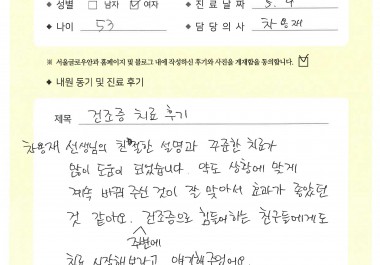 ◆ 성별 □ 남자 ☑ 여자 ◆ 진료날짜
◆ 나이 53 ◆ 담당의사 차용재
※ 서울글로우안과 홈페이지 및 블로그 내에 작성하신 후기와 사진을 게재함을 동의합니다. ☑
◆ 내원 동기 및 진료 후기
제목 건조증 치료 후기
차용재 선생님의 친절한 설명과 꾸준한 치료가
많이 도움이 되었습니다. 약도 상황에 맞게
계속 바꿔 주신 것이 잘 맞아서 효과가 좋았던
것 같아요. 건조증으로 힘들어하는 친구들에게도
주변에
치료 시작해보라고 얘기해주었어요.